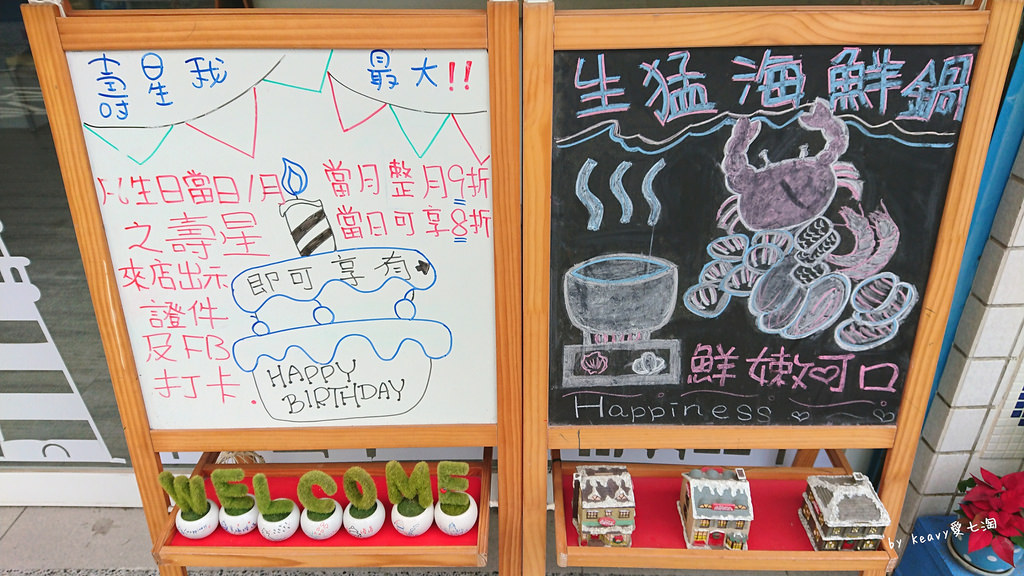 壽星我最大!!
凡生日當日/月
之壽星
來店出示
證件
及FB
打卡.
即可享有
當月整月9折
當日可享8折
HAPPY
BIRTHDAY
WELCOME
生猛海鮮鍋
鮮嫩可口
Happiness
by keavy愛七淘